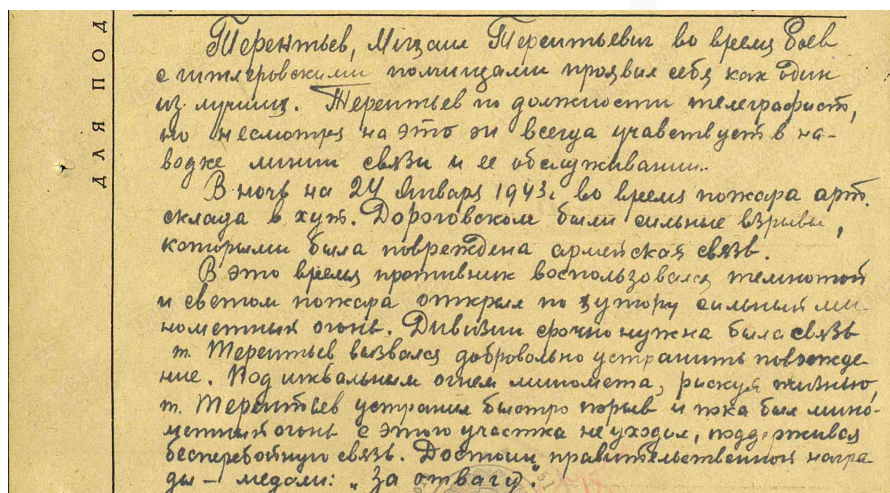 ДЛЯ ПОД
Терентьев, Михаил Терентьевич во время боев
с гитлеровскими полчищами проявил себя как один
из лучших. Терентьев по должности телеграфист,
но несмотря на это он всегда учавствует в на-
водке линии связи и ее обслуживании.
В ночь на 24 января 1943г во время пожара арт.
склада в хут. Дороговском были сильные взрывы,
которыми была повреждена армейская связь.
В это время противник воспользовался темнотой
и светом пожара открыл по хутору сильный ми-
нометный огонь. Дивизии срочно нужна была связь
т. Терентьев вызвался добровольно устранить поврежде-
ние. Под шквальным огнем миномета, рискуя жизнью,
т. Терентьев устранил быстро порыв и пока был мино-
метный огонь с этого участка не уходил, поддерживал
бесперебойную связь. Достоин правительственной награ-
ды – медали: „За отвагу".